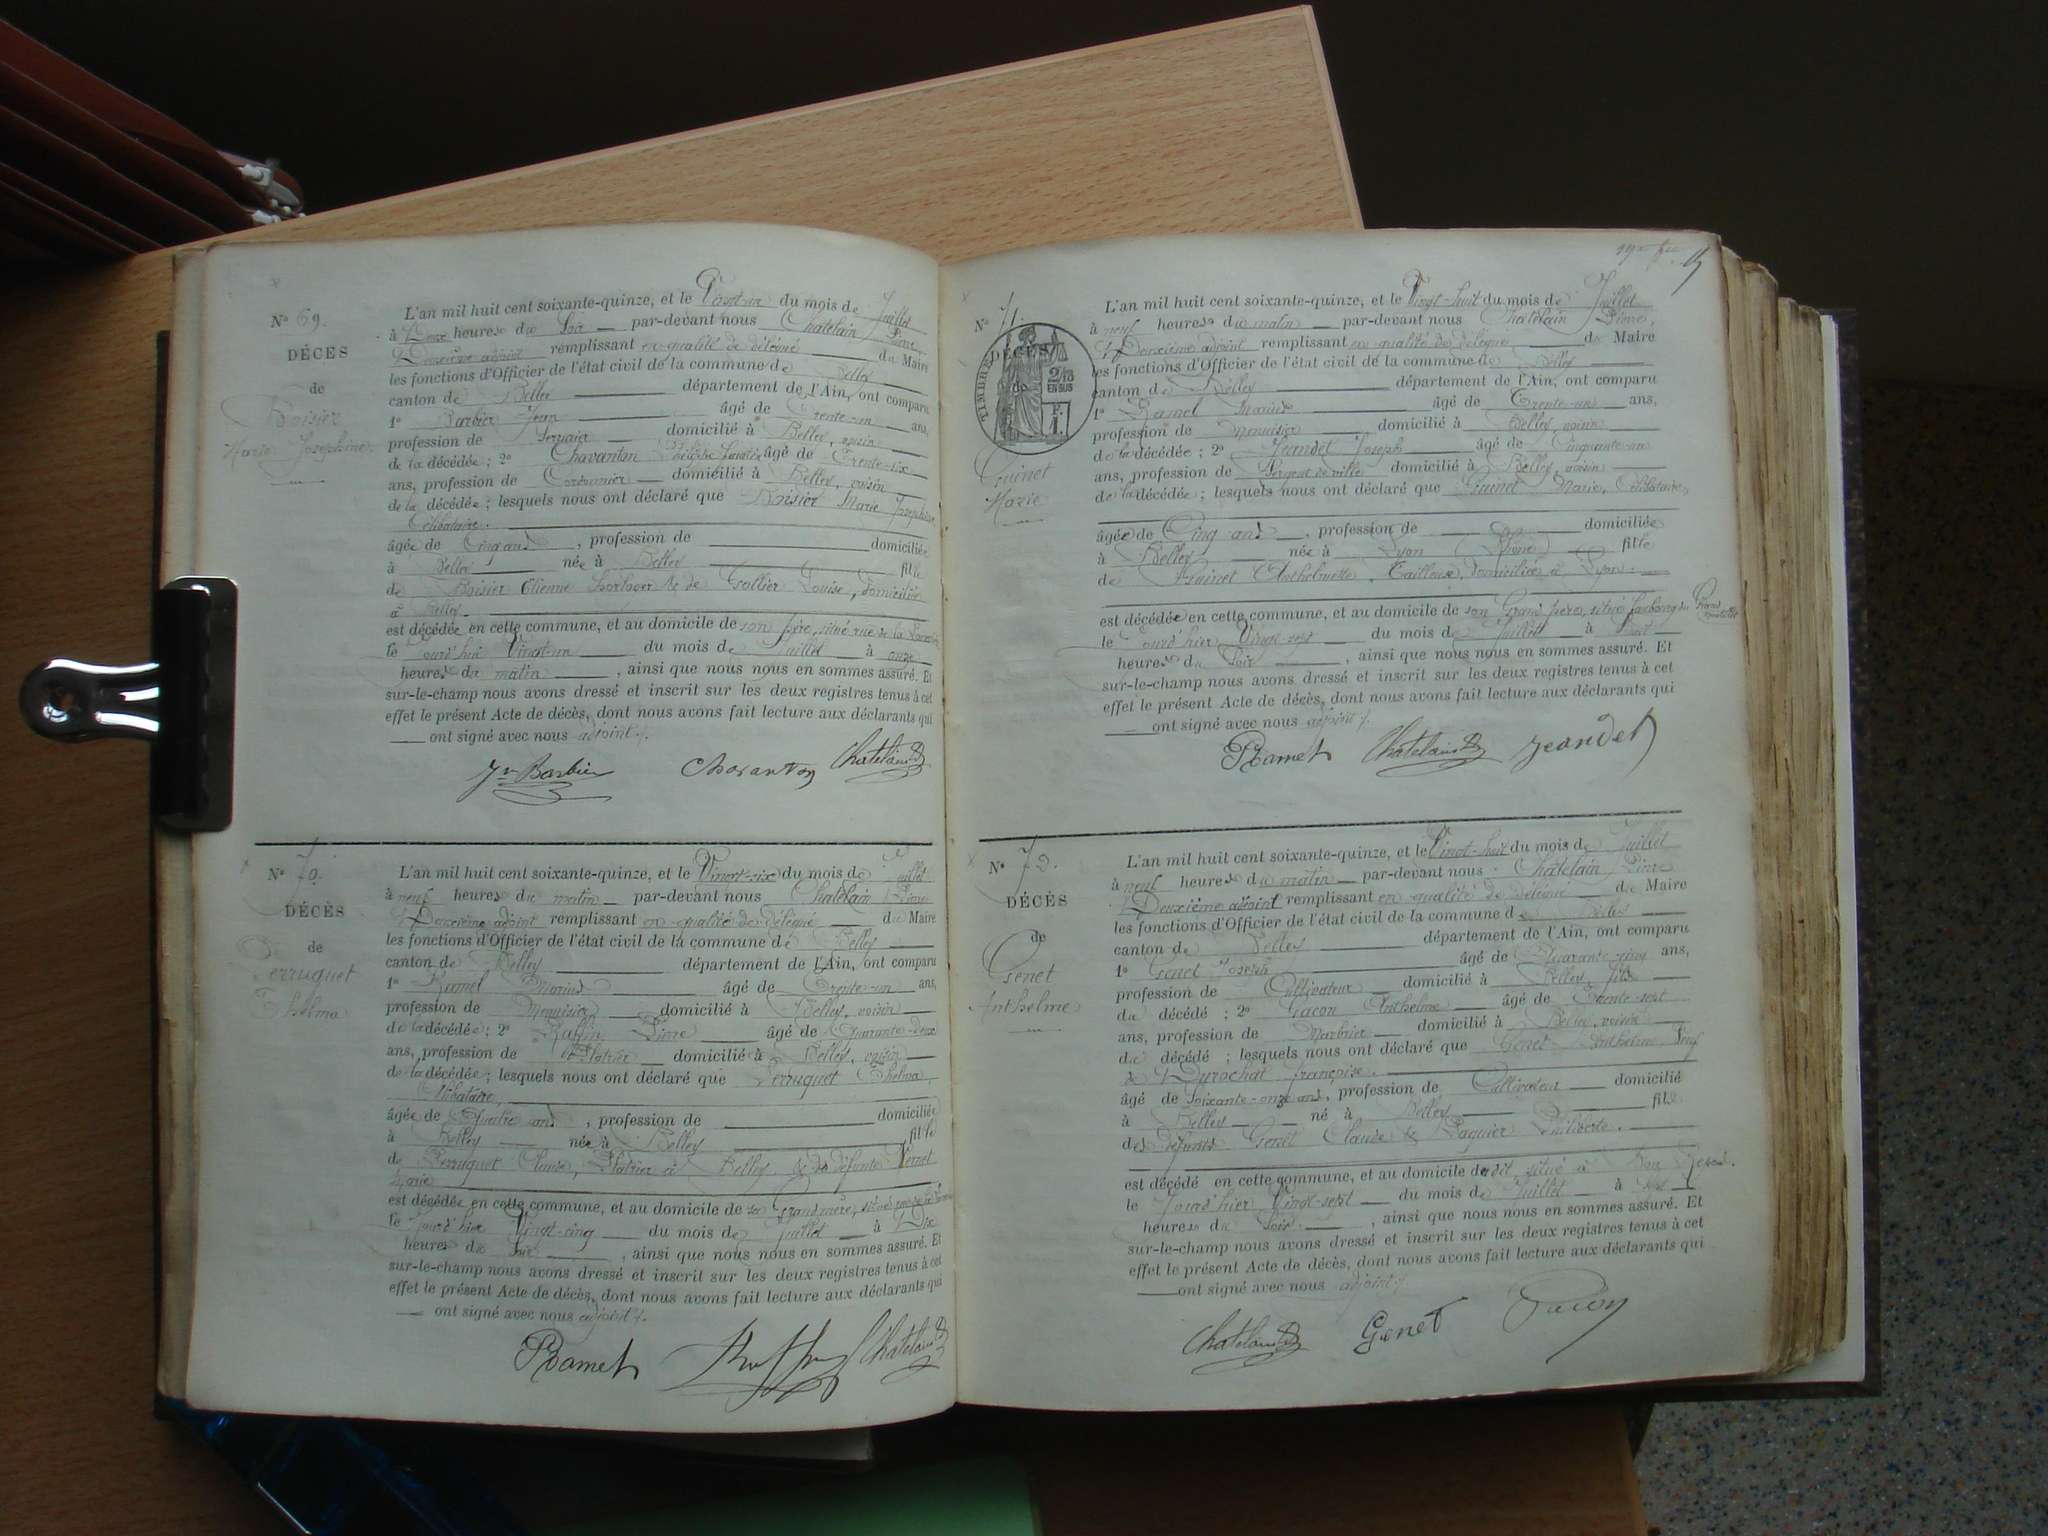 N° 69.
DÉCÈS
de
Boisier
Marie Josephine
L'an mil huit cent soixante-quinze, et le Vingt-un du mois de Juillet
à Deux heures du Soir par-devant nous Chatelain Pierre
Deuxième adjoint remplissant en qualité de délégué du Maire
les fonctions d'Officier de l'état civil de la commune de Belley
canton de Belley département de l'Ain, ont comparu
1° Barbier Jean âgé de Trente-un ans,
profession de domicilié à Belley, voisin
de la décédée ; 2° Chavanton âgé de Trente-six
ans, profession de Cordonnier domicilié à Belley, voisin
de la décédée ; lesquels nous ont déclaré que Boisier Marie Josephine
Célibataire.
âgée de Cinq ans, profession de domiciliée
à Belley née à Belley fille
de Boisier Etienne horloger & de Gollier Louise, domiciliés
à Belley.
est décédée en cette commune, et au domicile de son père, situé rue de la
le jourd'hui Vingt-un du mois de Juillet à onze
heures du matin, ainsi que nous nous en sommes assuré. Et
sur-le-champ nous avons dressé et inscrit sur les deux registres tenus à cet
effet le présent Acte de décès, dont nous avons fait lecture aux déclarants qui
ont signé avec nous adjoint.
Jn Barbier Chavanton Chatelain
N° 70.
DÉCÈS
de
Perruquet
Thelma
L'an mil huit cent soixante-quinze, et le Vingt-six du mois de Juillet
à neuf heures du matin par-devant nous Chatelain Pierre
Deuxième adjoint remplissant en qualité de délégué du Maire
les fonctions d'Officier de l'état civil de la commune de Belley
canton de Belley département de l'Ain, ont comparu
1° Ramel Marius âgé de Trente-un ans,
profession de Menuisier domicilié à Belley, voisin
de la décédée ; 2° Pierre âgé de Quarante-deux
ans, profession de Platrier domicilié à Belley, voisin
de la décédée ; lesquels nous ont déclaré que Perruquet Thelma,
Célibataire,
âgée de Quatre ans, profession de domiciliée
à Belley née à Belley fille
de Perruquet Claude, Platrier à Belley, & de défunte Vernet
Marie
est décédée en cette commune, et au domicile de sa Grand mère, situé rue
le jourd'hier Vingt-cinq du mois de Juillet à Dix
heures du Soir, ainsi que nous nous en sommes assuré. Et
sur-le-champ nous avons dressé et inscrit sur les deux registres tenus à cet
effet le présent Acte de décès, dont nous avons fait lecture aux déclarants qui
ont signé avec nous adjoint.
Ramel Chatelain
N° 71.
DÉCÈS
de
TIMBRE
2/10
EN SUS
F.
1.
Guinet
Marie
L'an mil huit cent soixante-quinze, et le Vingt-huit du mois de Juillet
à neuf heures du matin par-devant nous Chatelain Pierre,
Deuxième adjoint remplissant en qualité de délégué du Maire
les fonctions d'Officier de l'état civil de la commune de Belley
canton de Belley département de l'Ain, ont comparu
1° Ramel Marius âgé de Trente-un ans,
profession de Menuisier domicilié à Belley, voisin
de la décédée ; 2° Jeandet Joseph âgé de Cinquante-un
ans, profession de Sergent de ville domicilié à Belley, voisin
de la décédée ; lesquels nous ont déclaré que Guinet Marie, Célibataire,
âgée de Cinq ans, profession de domiciliée
à Belley née à Lyon (Rhône) fille
de Guinet Anthelmette, Tailleuse, domiciliée à Lyon.
est décédée en cette commune, et au domicile de son Grand père, situé faubourg du
le jourd'hier Vingt-sept du mois de Juillet à huit
heures du Soir, ainsi que nous nous en sommes assuré. Et
sur-le-champ nous avons dressé et inscrit sur les deux registres tenus à cet
effet le présent Acte de décès, dont nous avons fait lecture aux déclarants qui
ont signé avec nous adjoint.
Ramel Chatelain Jeandet
N° 72.
DÉCÈS
de
Genet
Anthelme
L'an mil huit cent soixante-quinze, et le Vingt-huit du mois de Juillet
à neuf heures du matin par-devant nous Chatelain Pierre
Deuxième adjoint remplissant en qualité de délégué du Maire
les fonctions d'Officier de l'état civil de la commune de Belley
canton de Belley département de l'Ain, ont comparu
1° Genet Joseph âgé de Quarante-cinq ans,
profession de Cultivateur domicilié à Belley fils
du décédé ; 2° Gacon Anthelme âgé de Trente-sept
ans, profession de Marbrier domicilié à Belley, voisin
du décédé ; lesquels nous ont déclaré que Genet Anthelme, Veuf
de Durochat françoise.
âgé de soixante-onze ans, profession de Cultivateur domicilié
à Belley né à Belley fils
des défunts Genet Claude & Paquier Philiberte.
est décédé en cette commune, et au domicile du dit, situé à
le Jourd'hier Vingt-sept du mois de Juillet à sept
heures du Soir, ainsi que nous nous en sommes assuré. Et
sur-le-champ nous avons dressé et inscrit sur les deux registres tenus à cet
effet le présent Acte de décès, dont nous avons fait lecture aux déclarants qui
ont signé avec nous adjoint.
Chatelain Genet Gacon